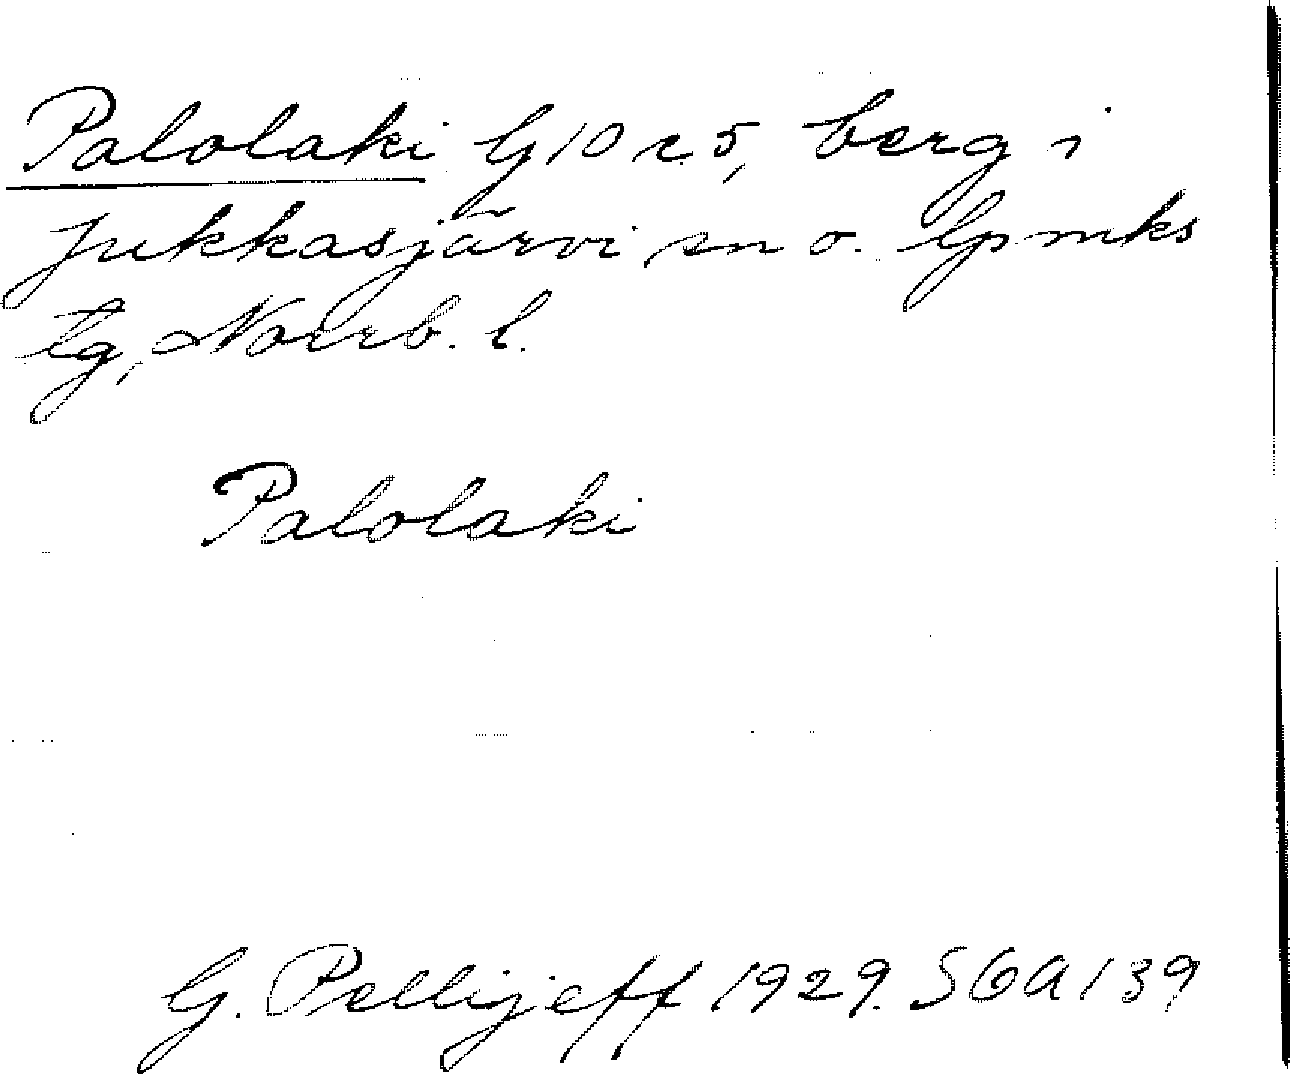 Palolaki G 10 c 5, berg i
Jukkasjärvi sn o. lpmks
tg, Norrb. l.
Palolaki
G. Pellijeff 1929. SGA 139